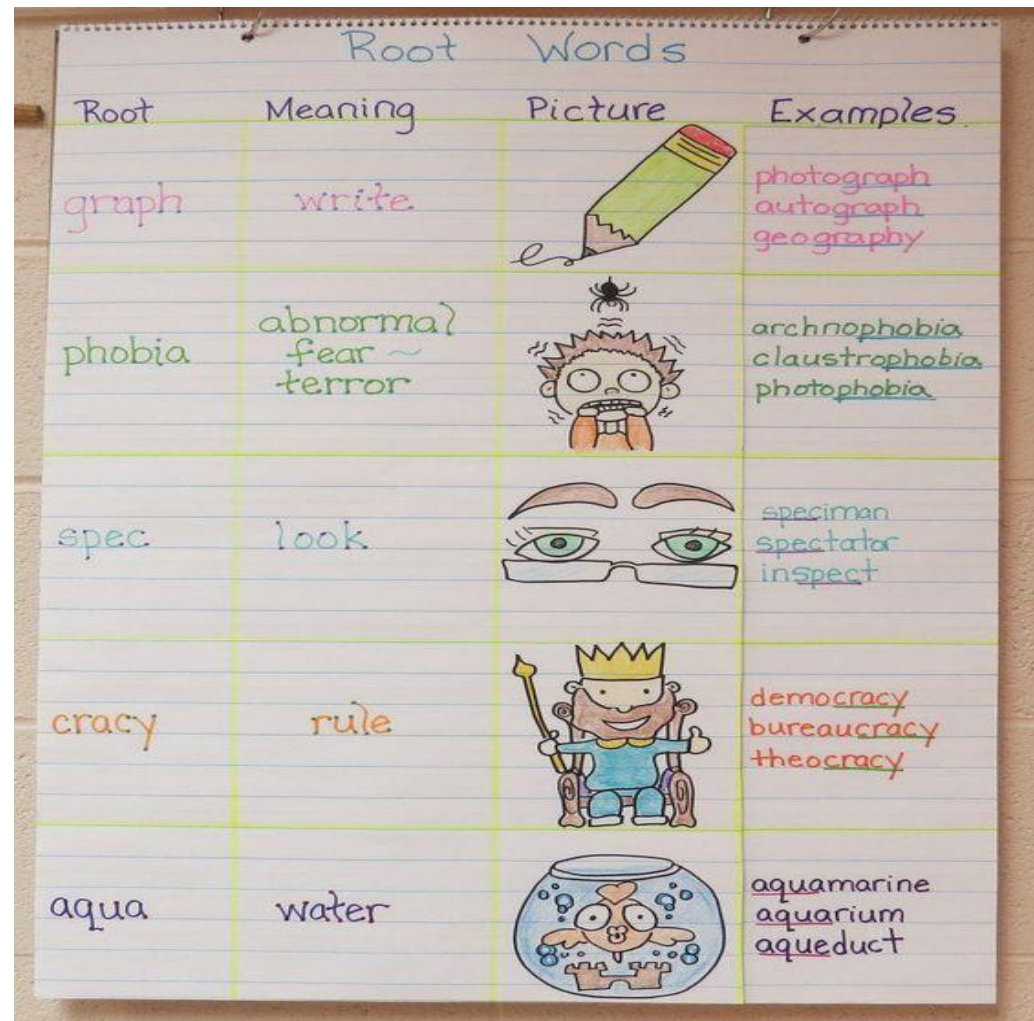 Root Words
Root Meaning Picture Examples
graph
write
photograph
autograph
geography
phobia
abnormal
fear ~
terror
archnophobia
claustrophobia
photophobia
spec
look
speciman
spectator
inspect
cracy
rule
democracy
bureaucracy
theocracy
aqua
water
aquamarine
aquarium
aqueduct